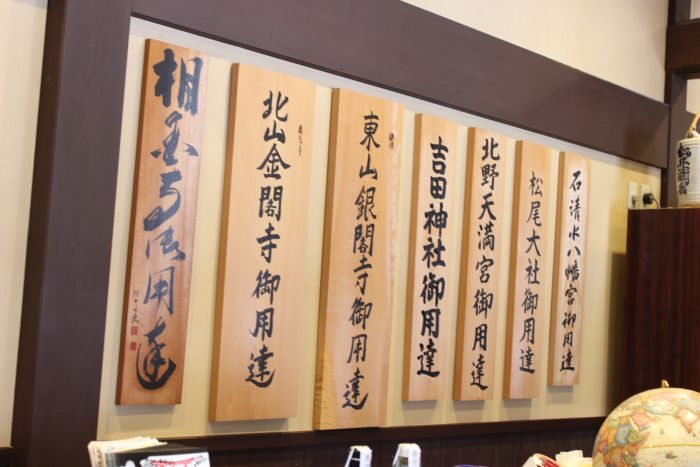 石清水八幡宮御用達
松尾大社御用達
北野天満宮御用達
吉田神社御用達
東山銀閣寺御用達
北山金閣寺御用達
相国寺御用達